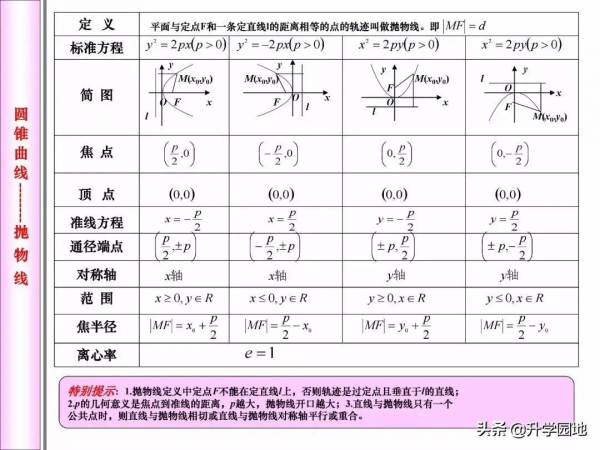 圆锥曲线------抛物线
定 义 平面与定点F和一条定直线l的距离相等的点的轨迹叫做抛物线。即 |MF|=d
标准方程 y²=2px(p>0) y²=-2px(p>0) x²=2py(p>0) x²=2py(p>0)
简 图
y M(x₀,y₀) O F x l
y M(x₀,y₀) F O x l
y M(x₀,y₀) F O x l
y l O x F M(x₀,y₀)
焦 点 (p/2,0) (-p/2,0) (0,p/2) (0,-p/2)
顶 点 (0,0) (0,0) (0,0) (0,0)
准线方程 x=-p/2 x=p/2 y=-p/2 y=p/2
通径端点 (p/2,±p) (-p/2,±p) (±p,p/2) (±p,-p/2)
对称轴 x轴 x轴 y轴 y轴
范 围 x≥0,y∈R x≤0,y∈R y≥0,x∈R y≤0,x∈R
焦半径 |MF|=x₀+p/2 |MF|=p/2-x₀ |MF|=y₀+p/2 |MF|=p/2-y₀
离心率 e=1
特别提示: 1.抛物线定义中定点F不能在定直线l上，否则轨迹是过定点且垂直于l的直线；
2.p的几何意义是焦点到准线的距离，p越大，抛物线开口越大；3.直线与抛物线只有一个
公共点时，则直线与抛物线相切或直线与抛物线对称轴平行或重合。
头条 @升学园地